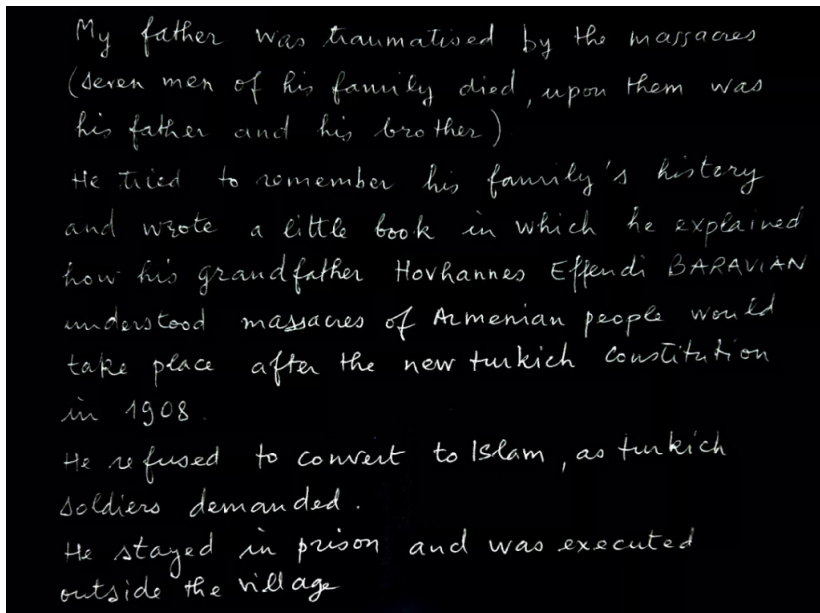 My father was traumatised by the massacres
(seven men of his family died, upon them was
his father and his brother)
He tried to remember his family's history
and wrote a little book in which he explained
how his grandfather Hovhannes Effendi BARAVIAN
understood massacres of Armenian people would
take place after the new turkich constitution
in 1908.
He refused to convert to Islam, as turkich
soldiers demanded.
He stayed in prison and was executed
outside the village